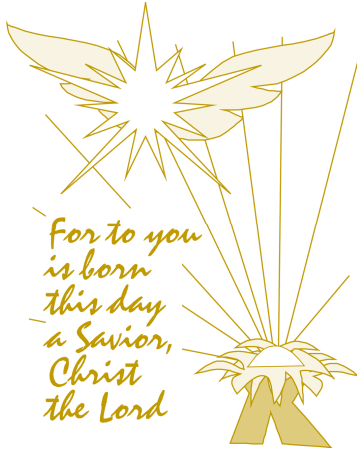 For to you
is born
this day
a Savior,
Christ
the Lord